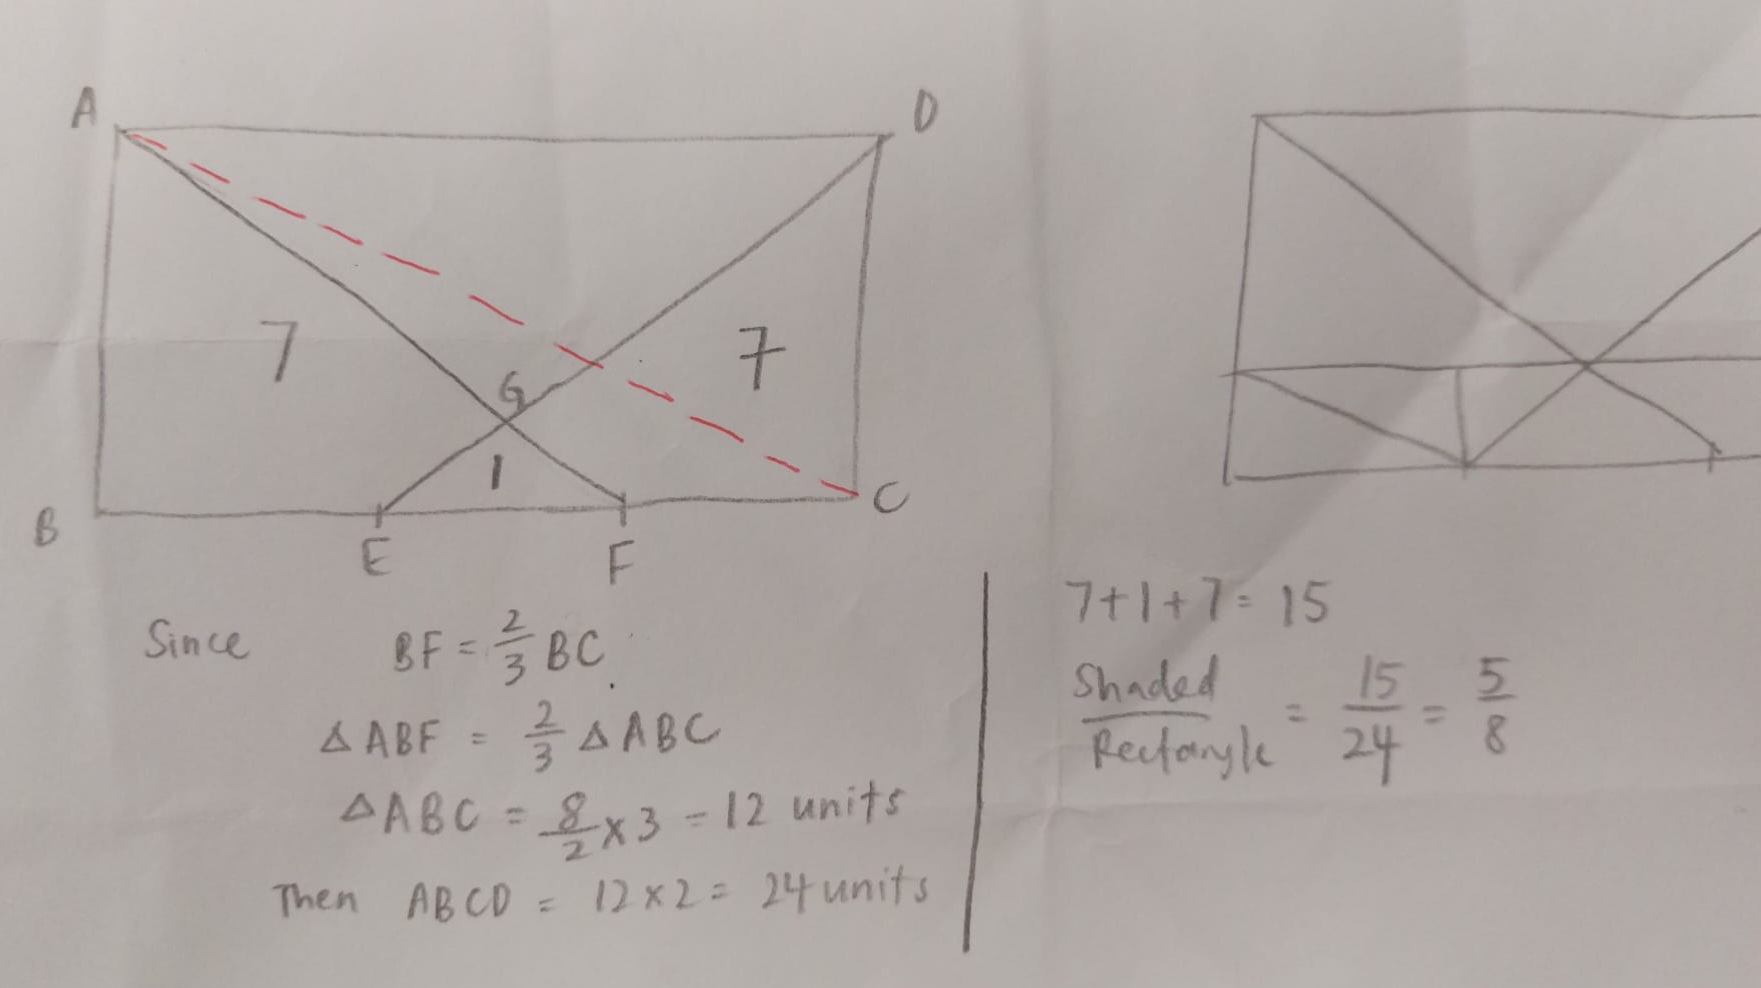 A
D
7
7
G
1
B
C
E
F
Since BF = 2/3 BC
△ABF = 2/3 △ABC
△ABC = 8/2 × 3 = 12 units
Then ABCD = 12 × 2 = 24 units
7 + 1 + 7 = 15
Shaded/Rectangle = 15/24 = 5/8